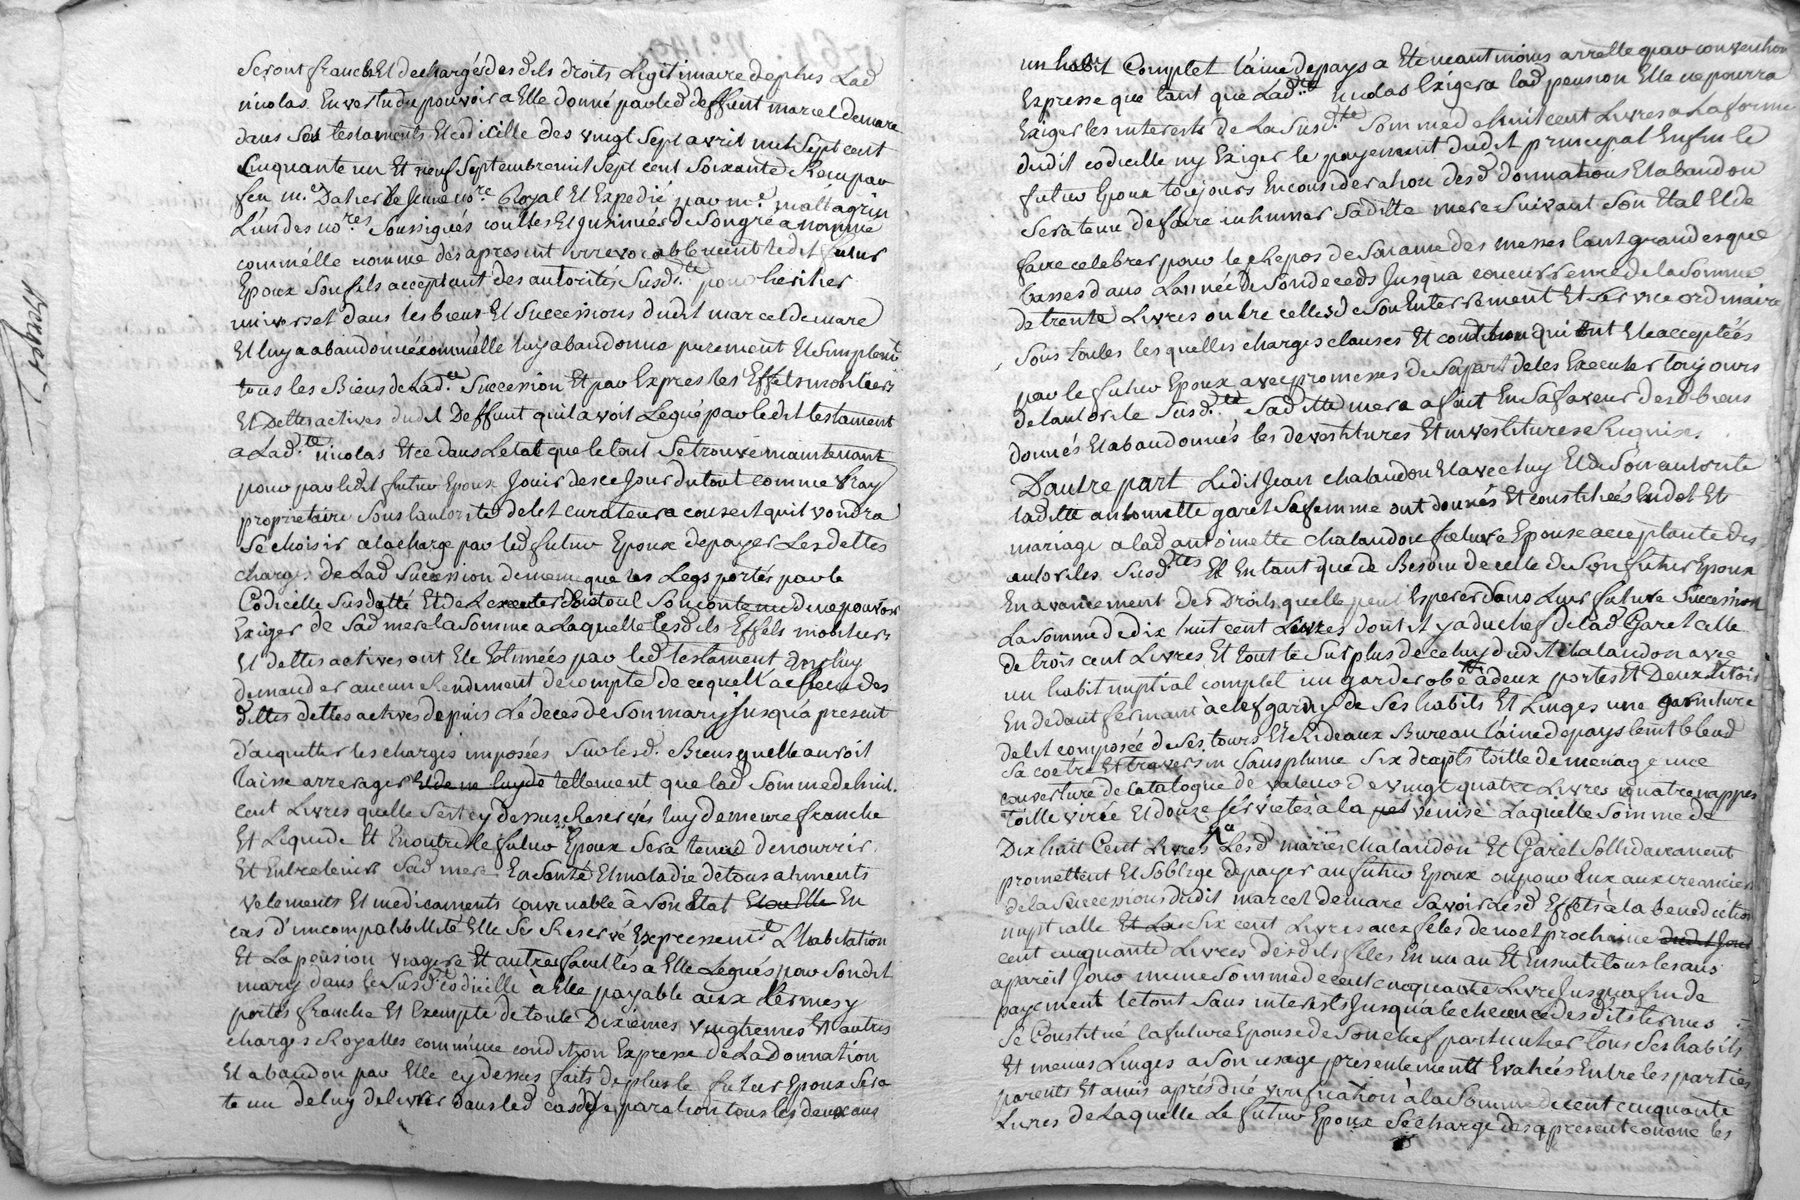 seront francs Et dechargés des dits droits Legitimaire de plus Lad
nicolas En vertu du pouvoir a Elle donné par led deffunt marcel demare
dans Ses testaments Et codicille des vingt Sept avril mil Sept cent
Cinquante un Et neuf Septembre mil Sept cent Soixante Reçu par
feu m.e Daher le Jeune no.re Royal Et Expedié par m.e mattagrin
L'un des no.res Soussignés controllés Et Insinués de Son gré a nommé
comm'elle nomme dès apresent irrevocablement ledit futur
Epoux Son fils acceptant des autorités Susd.tes pour heritier
universel dans les biens Et Successions dudit marcel demare
Et luy a abandonné comm'elle luy abandonne purement Et Simplem.t
tous les Biens de Lad.te Succession Et par Exprès les Effets mobiliers
Et Dettes actives dudit Deffunt qu'il avoit Legué par ledit testament
a Lad.te nicolas Et ce dans L'etat que le tout Se trouve maintenant
pour par ledit futur Epoux Jouir des ce Jour du tout comme Vray
proprietaire Sous l'autorité dudit curateur a conseil qu'il voudra
Se choisir a la charge par led futur Epoux de payer Les dettes
charges de Lad Succession de meme que les Legs portés par le
Codicille Susdatté Et de L'executer En tout Son contenu de ne pouvoir
Exiger de Sad mere la Somme a Laquelle lesdits Effets mobiliers
Et dettes actives ont Eté Estimées par led testament Any luy
demander aucun Rendument de compte de ce quell' a Perçu des
dittes dettes actives depuis Le deces de Son mary Jusqu'a present
d'acquitter les charges imposées Sur lesd. Biens quelle auroit
laissé arrerager Et de ne luy de tellement que lad Somme de huit
cent Livres quelle S'est cy dessus Reservés luy demeure franche
Et Liquide Et En outre le futur Epoux Sera tenu de nourrir
Et Entretenir Sad mere En Santé Et maladie de tous aliments
vetements Et medicaments convenable à Son Etat Et ou Elle En
cas d'incompatibillité Elle Se Reservé Expressem.t L'habitation
Et La pension viagere Et autres facultés a Elle Legués par Son dit
mary dans le Susd.t codicille à Elle payable aux termes y
portés franche Et Exempte de toute Dixièmes vingtiemes Et autres
charges Royalles comm'une condition Expresse de La Donnation
Et abandon par Elle cy dessus faits de plus le futur Epoux Sera
tenu de luy delivrer dans led cas de Separation tous les deux ans
un habit Complet laine de pays a Eté neantmoins arretté par convention
Expresse que tant que Lad.te nicolas Exigera lad pension Elle ne pourra
Exiger les interests de La Susd.te Somme de huit cent Livres a La forme
dudit codicille ny Exiger le payement dudit principal Enfin le
futur Epoux toujours En consideration desd donnations Et abandon
Sera tenu de faire inhumer Saditte mere Suivant Son Etat Et de
faire celebrer pour le Repos de Son ame des messes tant grandes que
basses dans L'année de Son deceds Jusqu'a concurrence de la Somme
de trente Livres outre celles de Son Enterrement Et Service ordinaire
Sous toutes lesquelles charges clauses Et condition qui ont Eté acceptées
par le futur Epoux avec promesses de Sa part de les Executer toujours
de l'autorité Susd.te Saditte mere a fait En Sa faveur desd biens
donnés Et abandonnés les devestitures Et investitures Requises.
D'autre part Ledit Jean chalandon Et avec luy Et de Son autorité
laditte antoinette garel Sa femme ont donnés Et constitués En dot Et
mariage a lad antoinette chalandon future Epouse acceptante des
autorités Susd.tes Et En tant que de Besoin de celle de Son futur Epoux
En avancement des Droits quelle peut Esperer dans Leur future Succession
La Somme de dix huit cent Livres dont il y a du chef de lad Garel celle
de trois cent Livres Et tout le Surplus de celuy dudit chalandon avec
un habit nuptial complet un garderobe à deux portes Et Deux titois
En dedant fermant a clef garny de Ses habits Et Linges une garniture
de lit composée de Ses tours Et Rideaux Bureau laine de pays teint bleud
Sa coetre Et traversin Sans plume Six draps toille de menage une
couverture de Catalogne de valeur de vingt quatre Livres quatre nappes
toille virée Et douze Servietes a la venise Laquelle Somme de
Dix huit Cent Livres Lesd mariés chalandon Et Garel Sollidairement
promettent Et S'oblige de payer au futur Epoux ou pour Eux aux creanciers
de la Succession dudit marcel demare Savoir lesd Effets à la benediction
nuptialle Et La Six cent Livres aux fêtes de noel prochaine dudit Jour
cent cinquante Livres desdits fêtes En un an Et Ensuite tous les ans
a pareil Jour meme Somme de cent cinquante Livres Jusqu'a fin de
payement le tout Sans interests Jusqu'a l'echeance desdits termes
Se Constitué la future Epouse de Son chef particulier tous Ses habits
Et menus Linges a Son usage presentement Evalués Entre les parties
parents Et amis après dué verification à la Somme de cent cinquante
Livres de Laquelle Le futur Epoux Se charge des apresent comme les